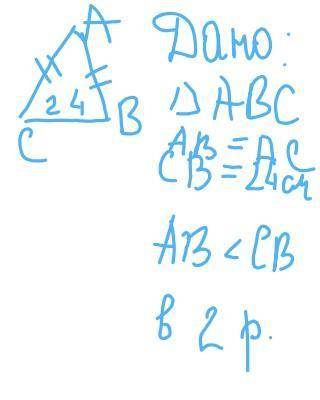 A
24
C
B
Дано:
△ ABC
AB = AC
CB = 24см
AB < CB
в 2 р.